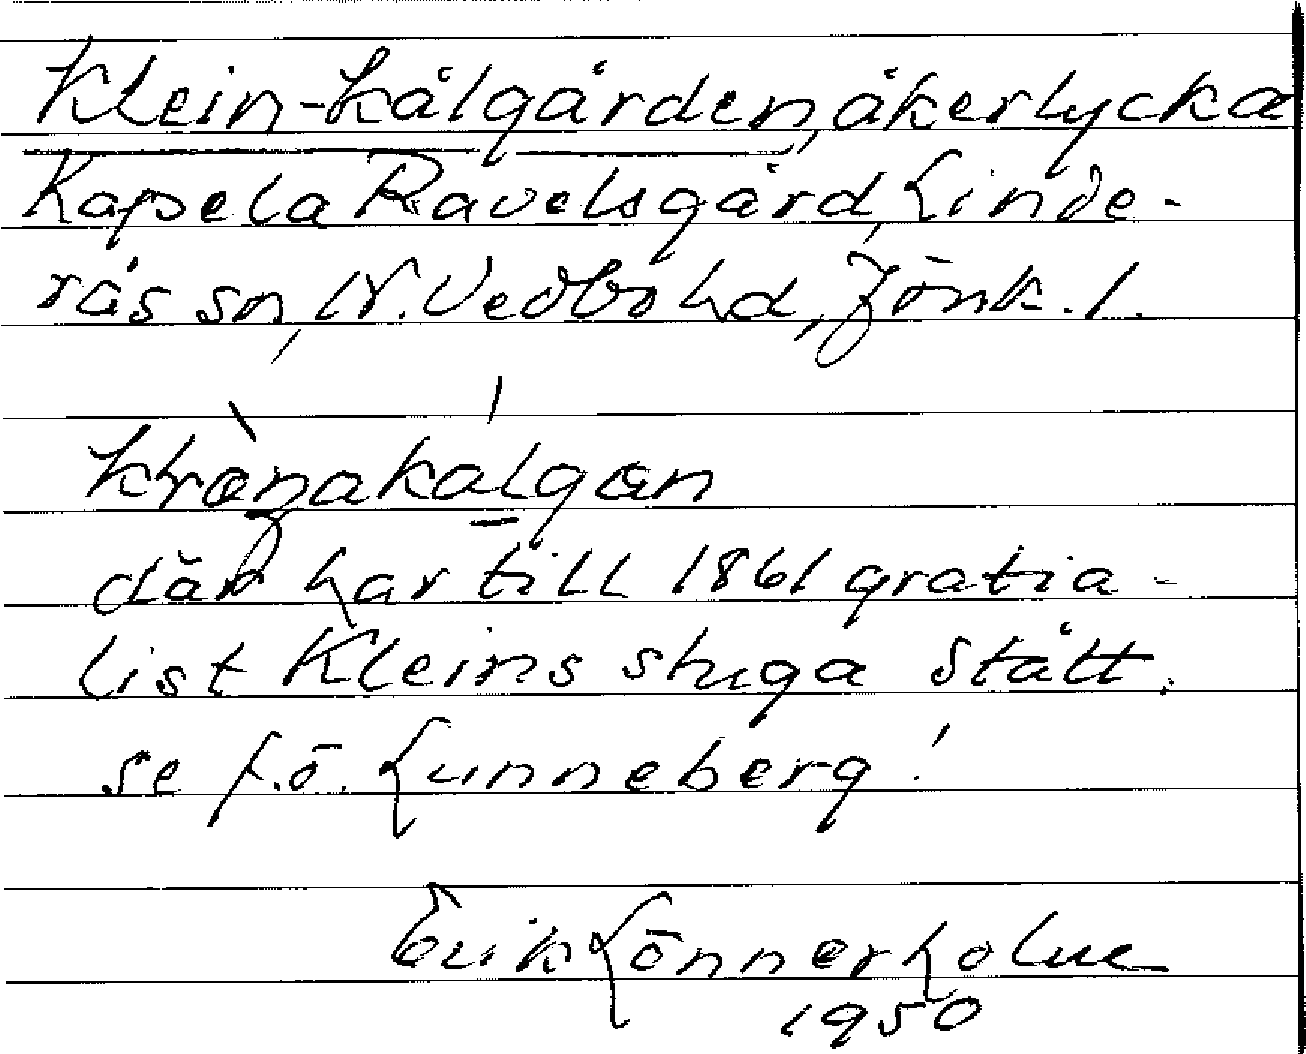 Klein-kålgården, åkerlycka
Kapela Ravelsgård, Linde-
rås sn, N. Vedbo hd, Jönk. l.
klränakålgan
där har till 1861 gratia-
list Kleins stuga stått.
se f.ö. Lunneberg!
Erik Lönnerholm
1950